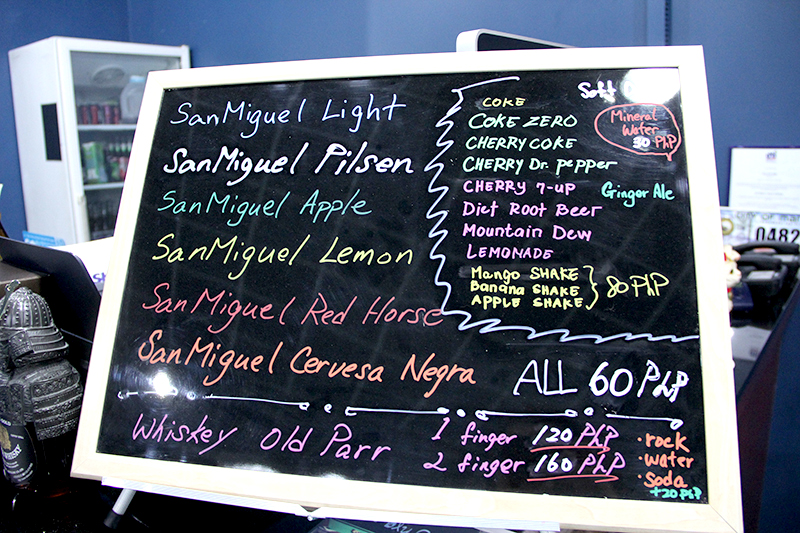 SanMiguel Light
SanMiguel Pilsen
SanMiguel Apple
SanMiguel Lemon
SanMiguel Red Horse
SanMiguel Cervesa Negra
Soft
COKE
COKE ZERO
CHERRY COKE
CHERRY Dr. pepper
CHERRY 7-UP
Diet Root Beer
Mountain Dew
LEMONADE
Mango SHAKE
Banana SHAKE
APPLE SHAKE
80 PhP
Mineral
Water
30 PhP
Ginger Ale
ALL 60 PhP
Whiskey Old Parr
1 finger 120 PhP
2 finger 160 PhP
・rock
・water
・soda
+20 PhP
0482